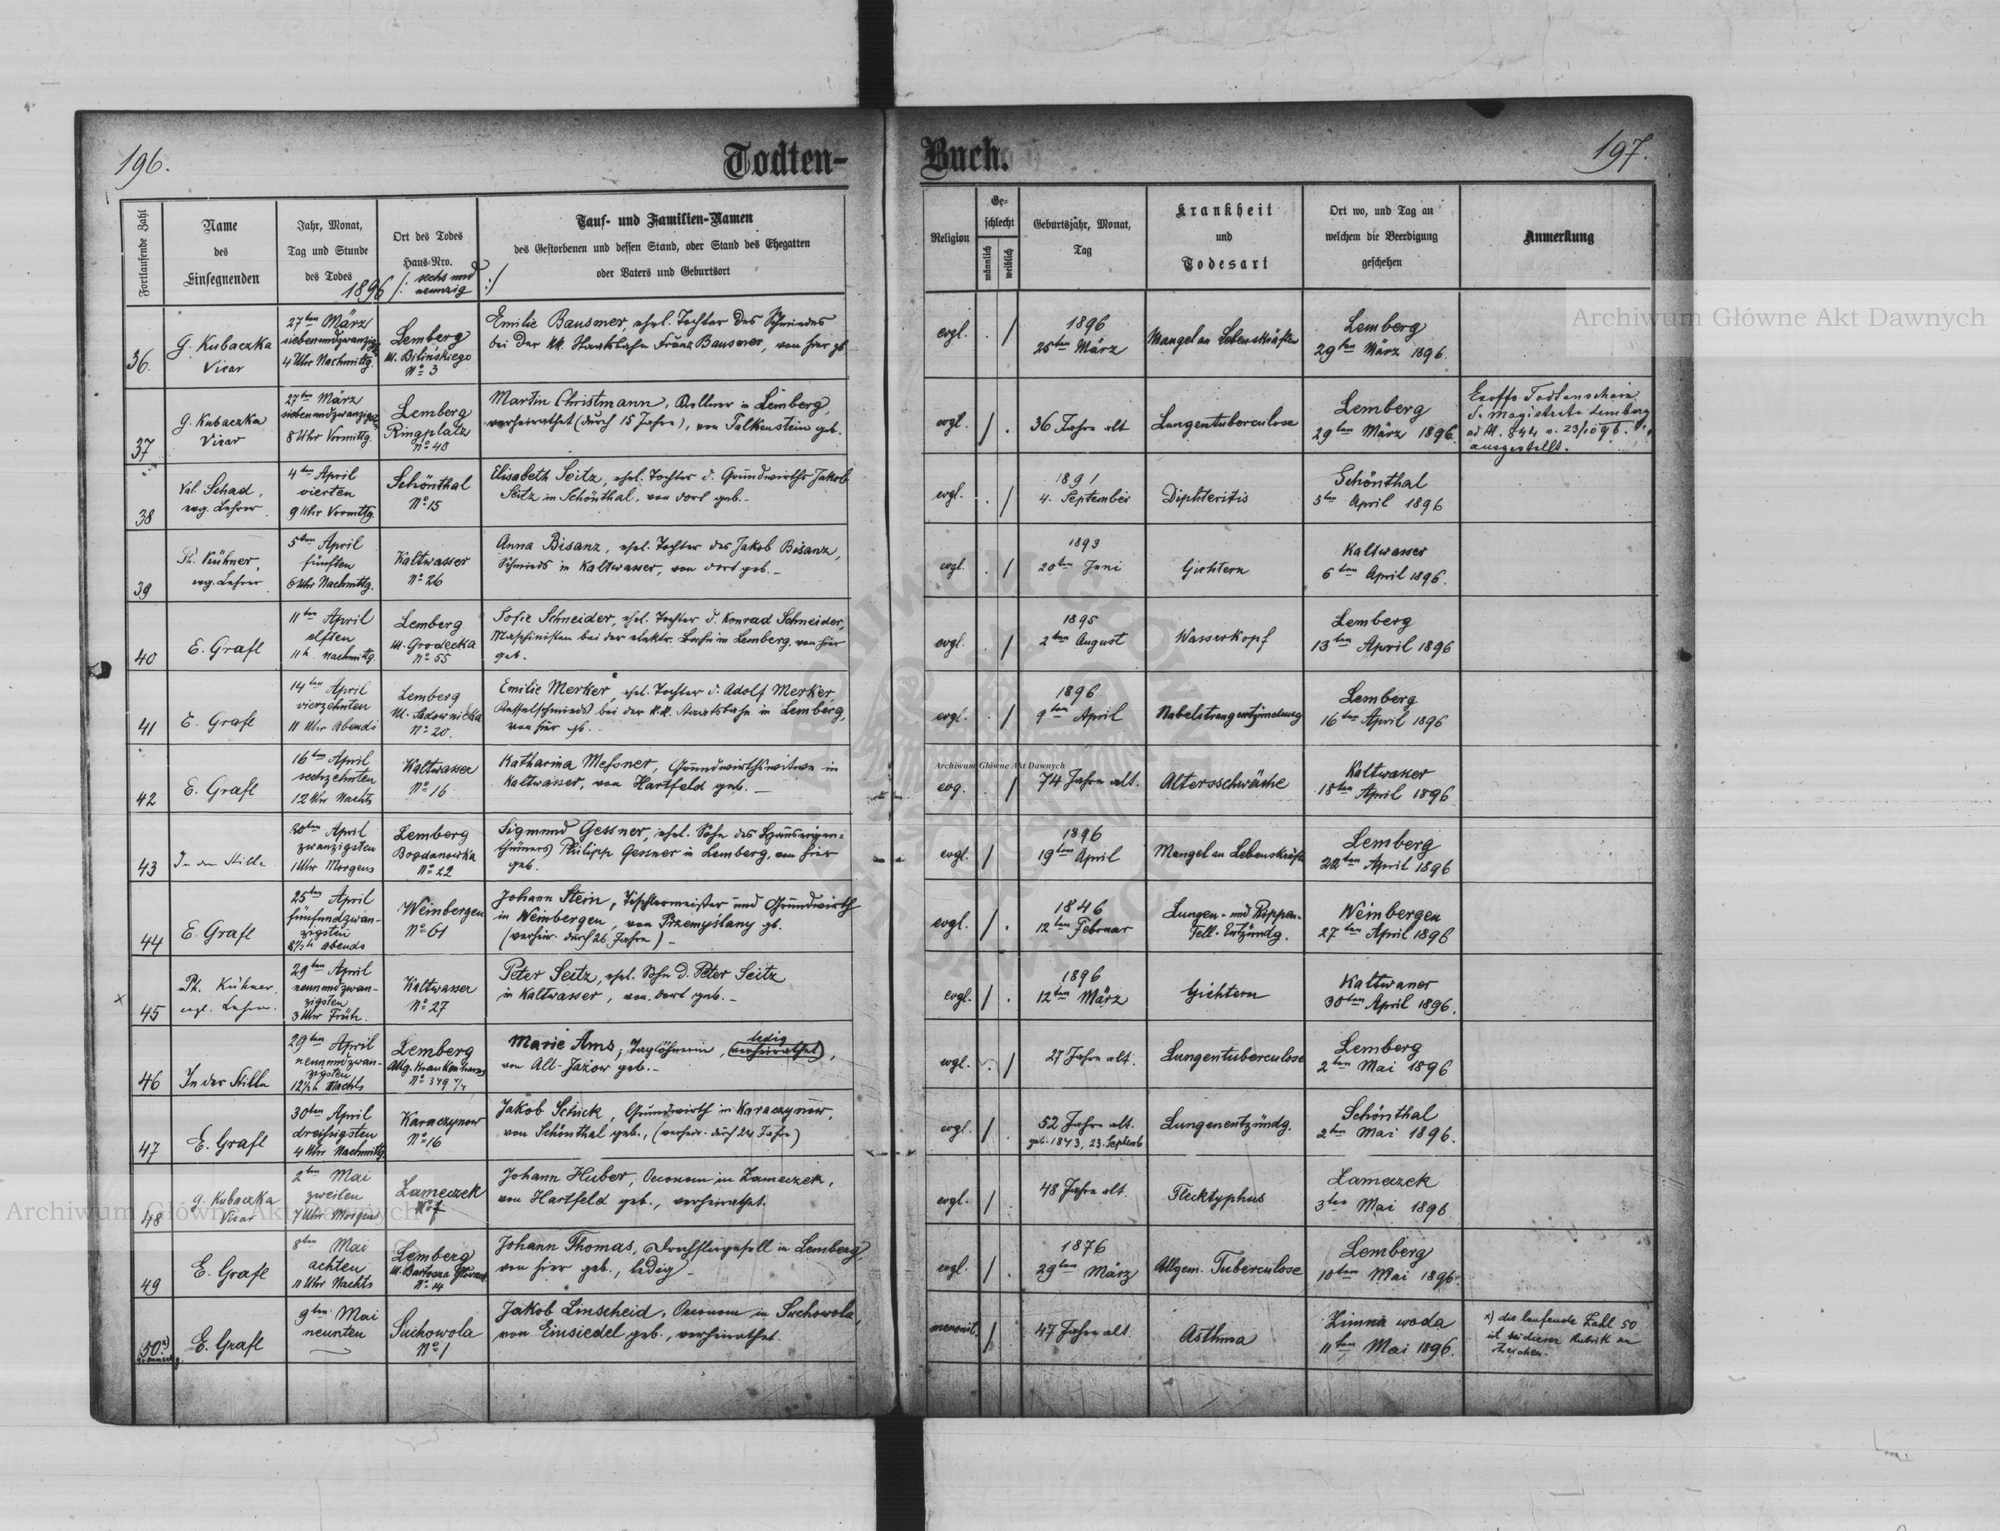 196.
Todten-
Buch.
197.
Fortlaufende Zahl
Name
des
Einsegnenden
Jahr, Monat,
Tag und Stunde
des Todes
1896
Ort des Todes
Haus-Nro.
/: sechs und
neunzig :/
Tauf- und Familien-Namen
des Gestorbenen und dessen Stand, oder Stand des Ehegatten
oder Vaters und Geburtsort
Religion
Ge-
schlecht
männlich
weiblich
Geburtsjahr, Monat,
Tag
Krankheit
und
Todesart
Ort wo, und Tag an
welchem die Beerdigung
geschehen
Anmerkung
36.
G. Kubaczka
Vicar
27ten März
siebenundzwanzig
4 Uhr Nachmittg.
Lemberg
ul. Bilińskiego
No 3
Emilie Bausmer, ehel. Tochter des Schmiedes
bei der kk. Staatsbahn Franz Bausmer, von hier gb.
evgl.
. /
1896
25ten März
Mangel an Lebenskräften
Lemberg
29ten März 1896.
37
G. Kubaczka
Vicar
27ten März
siebenundzwanzig
8 Uhr Vormittg.
Lemberg
Ringplatz
No 40
Martin Christmann, Kellner in Lemberg,
verheirathet (durch 15 Jahre), von Falkenstein geb.
evgl.
/ .
36 Jahre alt
Lungentuberculose
Lemberg
29ten März 1896.
Todtenschein
d. Magistrats Lemberg
ausgestellt.
38
Val. Schad,
evg. Lehrer
4ten April
vierten
9 Uhr Vormittg.
Schönthal
No 15
Elisabeth Seitz, ehel. Tochter d. Grundwirths Jakob
Seitz in Schönthal, von dort geb. -
evgl.
. /
1891
4. September
Diphteritis
Schönthal
5ten April 1896
39
Ph. Kühner,
evg. Lehrer
5ten April
fünften
6 Uhr Nachmittg.
Kaltwasser
No 26
Anna Bisanz, ehel. Tochter des Jakob Bisanz,
Schmieds in Kaltwasser, von dort geb. -
evgl.
. /
1893
20ten Juni
Gichtern
Kaltwasser
6ten April 1896.
40
E. Grafl
11ten April
elften
11 h. Nachmittg.
Lemberg
ul. Grodecka
No 55
Sofie Schneider, ehel. Tochter d. Konrad Schneider,
Maschinisten bei der elektr. Bahn in Lemberg, von hier
geb.
evgl.
. /
1895
2ten August
Wasserkopf
Lemberg
13ten April 1896
41
E. Grafl
14ten April
vierzehnten
11 Uhr Abends
Lemberg
ul. Sadownicka
No 20.
Emilie Merker, ehel. Tochter d. Adolf Merker
Kesselschmieds bei der k.k. Staatsbahn in Lemberg,
von hier gb. -
evgl.
. /
1896
9ten April
Lemberg
16ten April 1896
42
E. Grafl
16ten April
sechzehnten
12 Uhr Nachts
Kaltwasser
No 16
Katharina Meßner, Grundwirthswitwe in
Kaltwasser, von Hartfeld geb. -
evg.
. /
74 Jahre alt.
Altersschwäche
Kaltwasser
18ten April 1896
43
In der Stille
20ten April
zwanzigsten
1 Uhr Morgens
Lemberg
Bogdanowka
No 22
Sigmund Gessner, ehel. Sohn des Hauseigen-
thümers Philipp Gessner in Lemberg, von hier
geb.
evgl.
/
1896
19ten April
Mangel an Lebenskräft
Lemberg
22ten April 1896
44
E. Grafl
25ten April
fünfundzwan-
zigsten
8½ h Abends
Weinbergen
No 61
Johann Stein, Tischlermeister und Grundwirth
in Weinbergen, von Przemyślany gb.
(verheir. durch 26 Jahre) -
evgl.
/ .
1846
12ten Februar
Lungen- und Rippen-
fell-Entzündg.
Weinbergen
27ten April 1896
x
45
Ph. Kühner.
evgl. Lehrer.
29ten April
neunundzwan-
zigsten
3 Uhr Früh.
Kaltwasser
No 27
Peter Seitz, ehel. Sohn d. Peter Seitz
in Kaltwasser, von dort geb. -
evgl.
/ .
1896
12ten März
Gichtern
Kaltwasser
30ten April 1896.
46
In der Stille
29ten April
neunundzwan-
zigsten
12½ h Nachts
Lemberg
Allg. Krankenhaus
Marie Ams, Taglöhnerin, (verheirathet),
ledig
von Alt-Jazow geb. -
evgl.
. /
27 Jahre alt.
Lungentuberculose
Lemberg
2ten Mai 1896
47
E. Grafl
30ten April
dreißigsten
4 Uhr Nachmittg.
Karaczynow
No 16
Jakob Schick, Grundwirth in Karaczynow,
von Schönthal geb., (verheir. durch 24 Jahre)
evgl.
/ .
52 Jahre alt.
geb. 1843, 23. Septemb
Lungenentzündg.
Schönthal
2ten Mai 1896.
48
G. Kubaczka
Vicar
2ten Mai
zweiten
7 Uhr Morgens
Zameczek
No 7
Johann Huber, Oeconom in Zameczek,
von Hartfeld geb., verheirathet.
evgl.
/
48 Jahre alt.
Flecktyphus
Zameczek
3ten Mai 1896
49
E. Grafl
8ten Mai
achten
11 Uhr Nachts
Lemberg
No 14
Johann Thomas, Drechslergesell in Lemberg,
von hier geb., ledig -
evgl.
/ .
1876
29ten März
Allgem. Tuberculose
Lemberg
10ten Mai 1896.
(50.x)
E. Grafl
9ten Mai
neunten
Suchowola
No 1
Jakob Linscheid, Oeconom in Suchowola,
von Einsiedel geb., verheirathet.
mennit.
/
47 Jahre alt.
Asthma
Zimna woda
11ten Mai 1896.
x) die laufende Zahl 50
ist bei dieser Rubrik zu
streichen.
Archiwum Główne Akt Dawnych
Archiwum Główne Akt Dawnych
Archiwum Główne Akt Dawnych